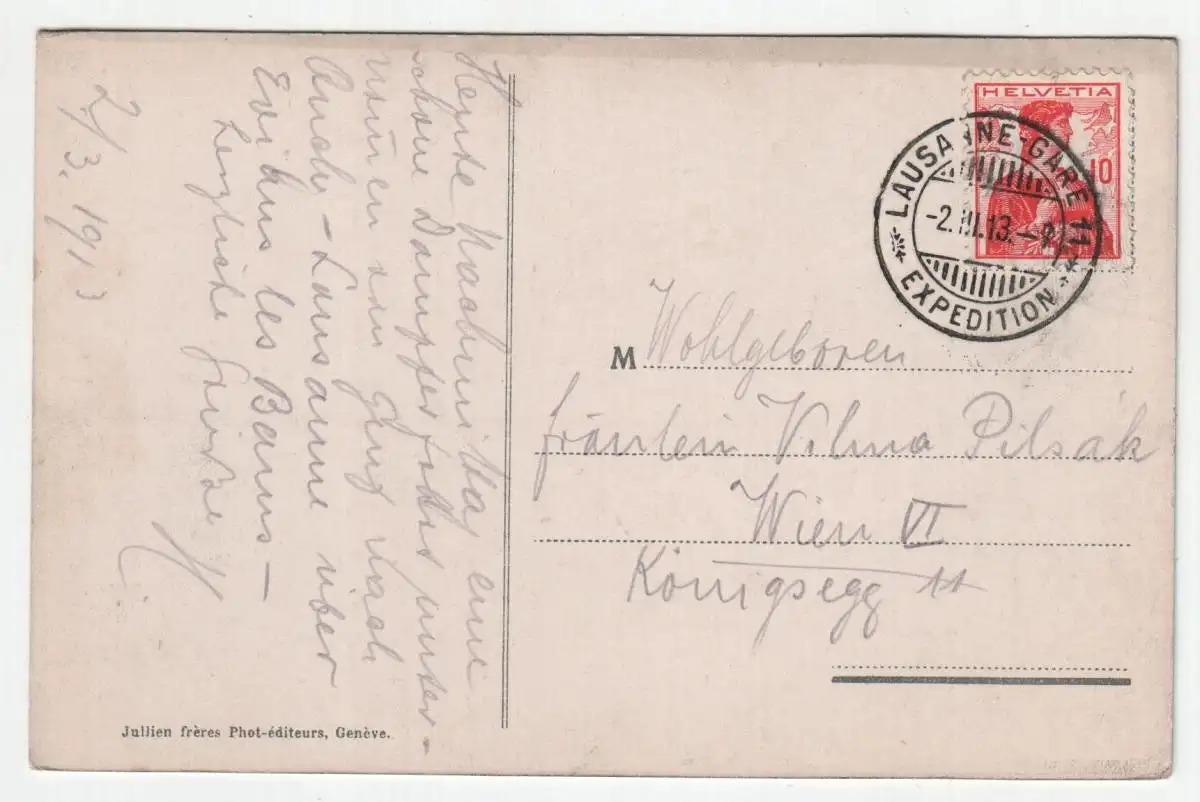 2/3. 1913
Heute Nachmittag eine
schöne Dampferfahrt unter-
von Genf nach
Lausanne über
Evian les Bains –
Herzliche Grüße
HELVETIA
10
LAUSANNE-GARE 11
-2.III.13.
EXPEDITION
M Wohlgeboren
Fräulein Vilma Pilsák
Wien VI
Königsegg 11
Jullien frères Phot-éditeurs, Genève.